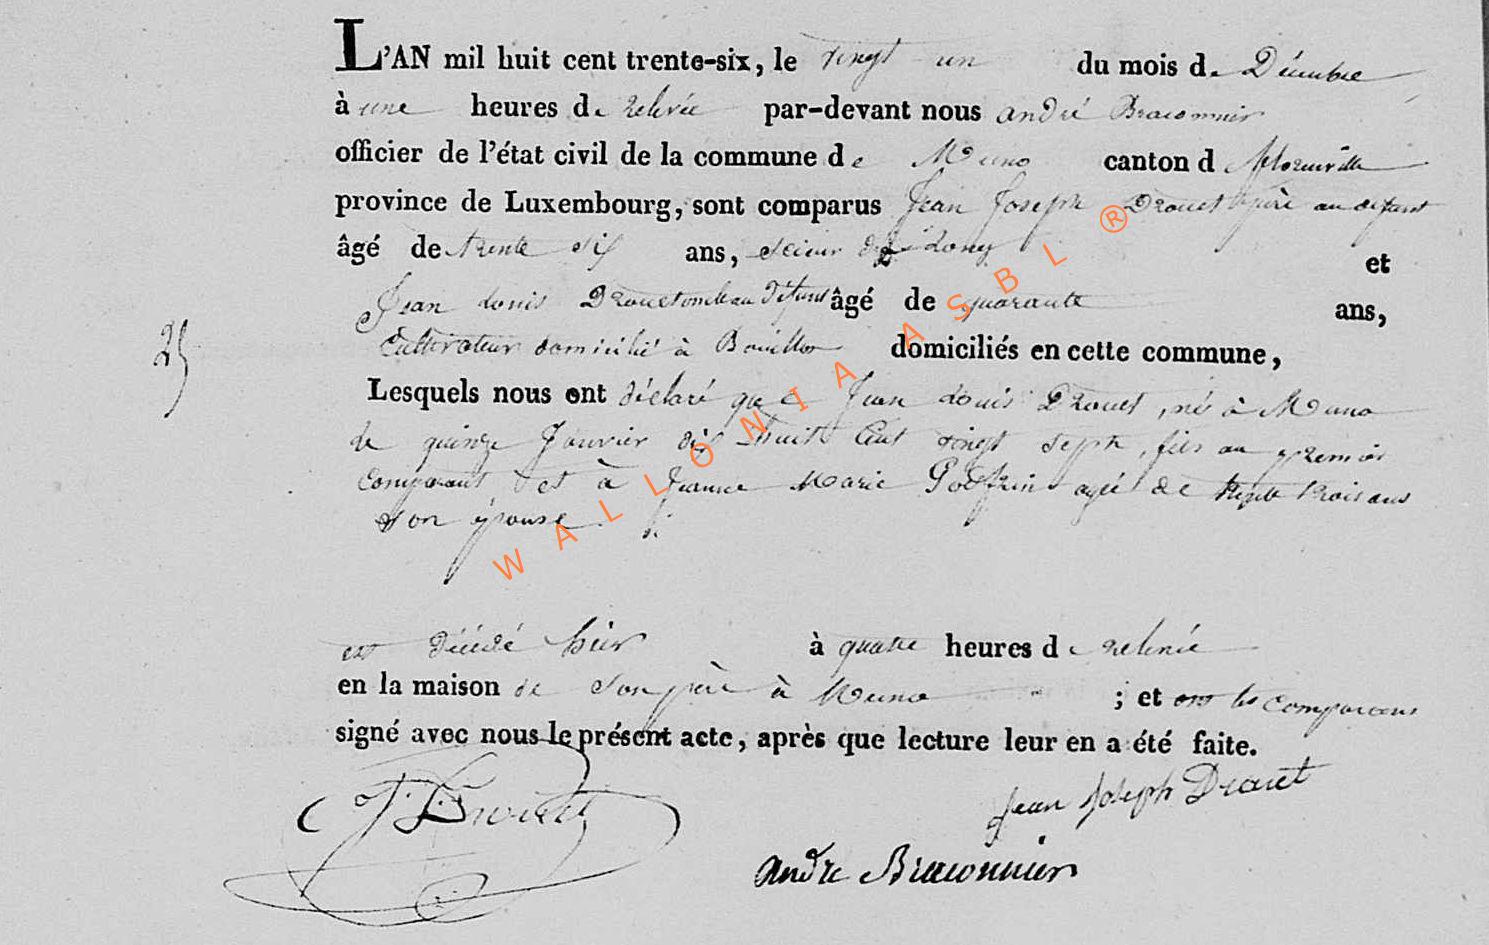 L'AN mil huit cent trente-six, le vingt un du mois de Décembre
à une heures de relevée par-devant nous andré Braconnier
officier de l'état civil de la commune de Muno canton d florenville
province de Luxembourg, sont comparus Jean Joseph Drouet père au défunt
âgé de trente six ans, scieur de Long et
Jean Louis Drouet défunt âgé de quarante ans,
Cultivateur domicilié à Bouillon domiciliés en cette commune,
25
Lesquels nous ont déclaré que Jean Louis Drouet, né à Muno
le quinze Janvier dix huit Cent vingt sept, fils au premier
comparant et à Jeanne Marie Godfrin agée de trente trois ans
son épouse
est décédé hier à quatre heures de relevée
en la maison de son père à Muno ; et les comparans
signé avec nous le présent acte, après que lecture leur en a été faite.
J. L. Drouet
Jean Joseph Drouet
andre Braconnier
WALLONIA ASBL ®